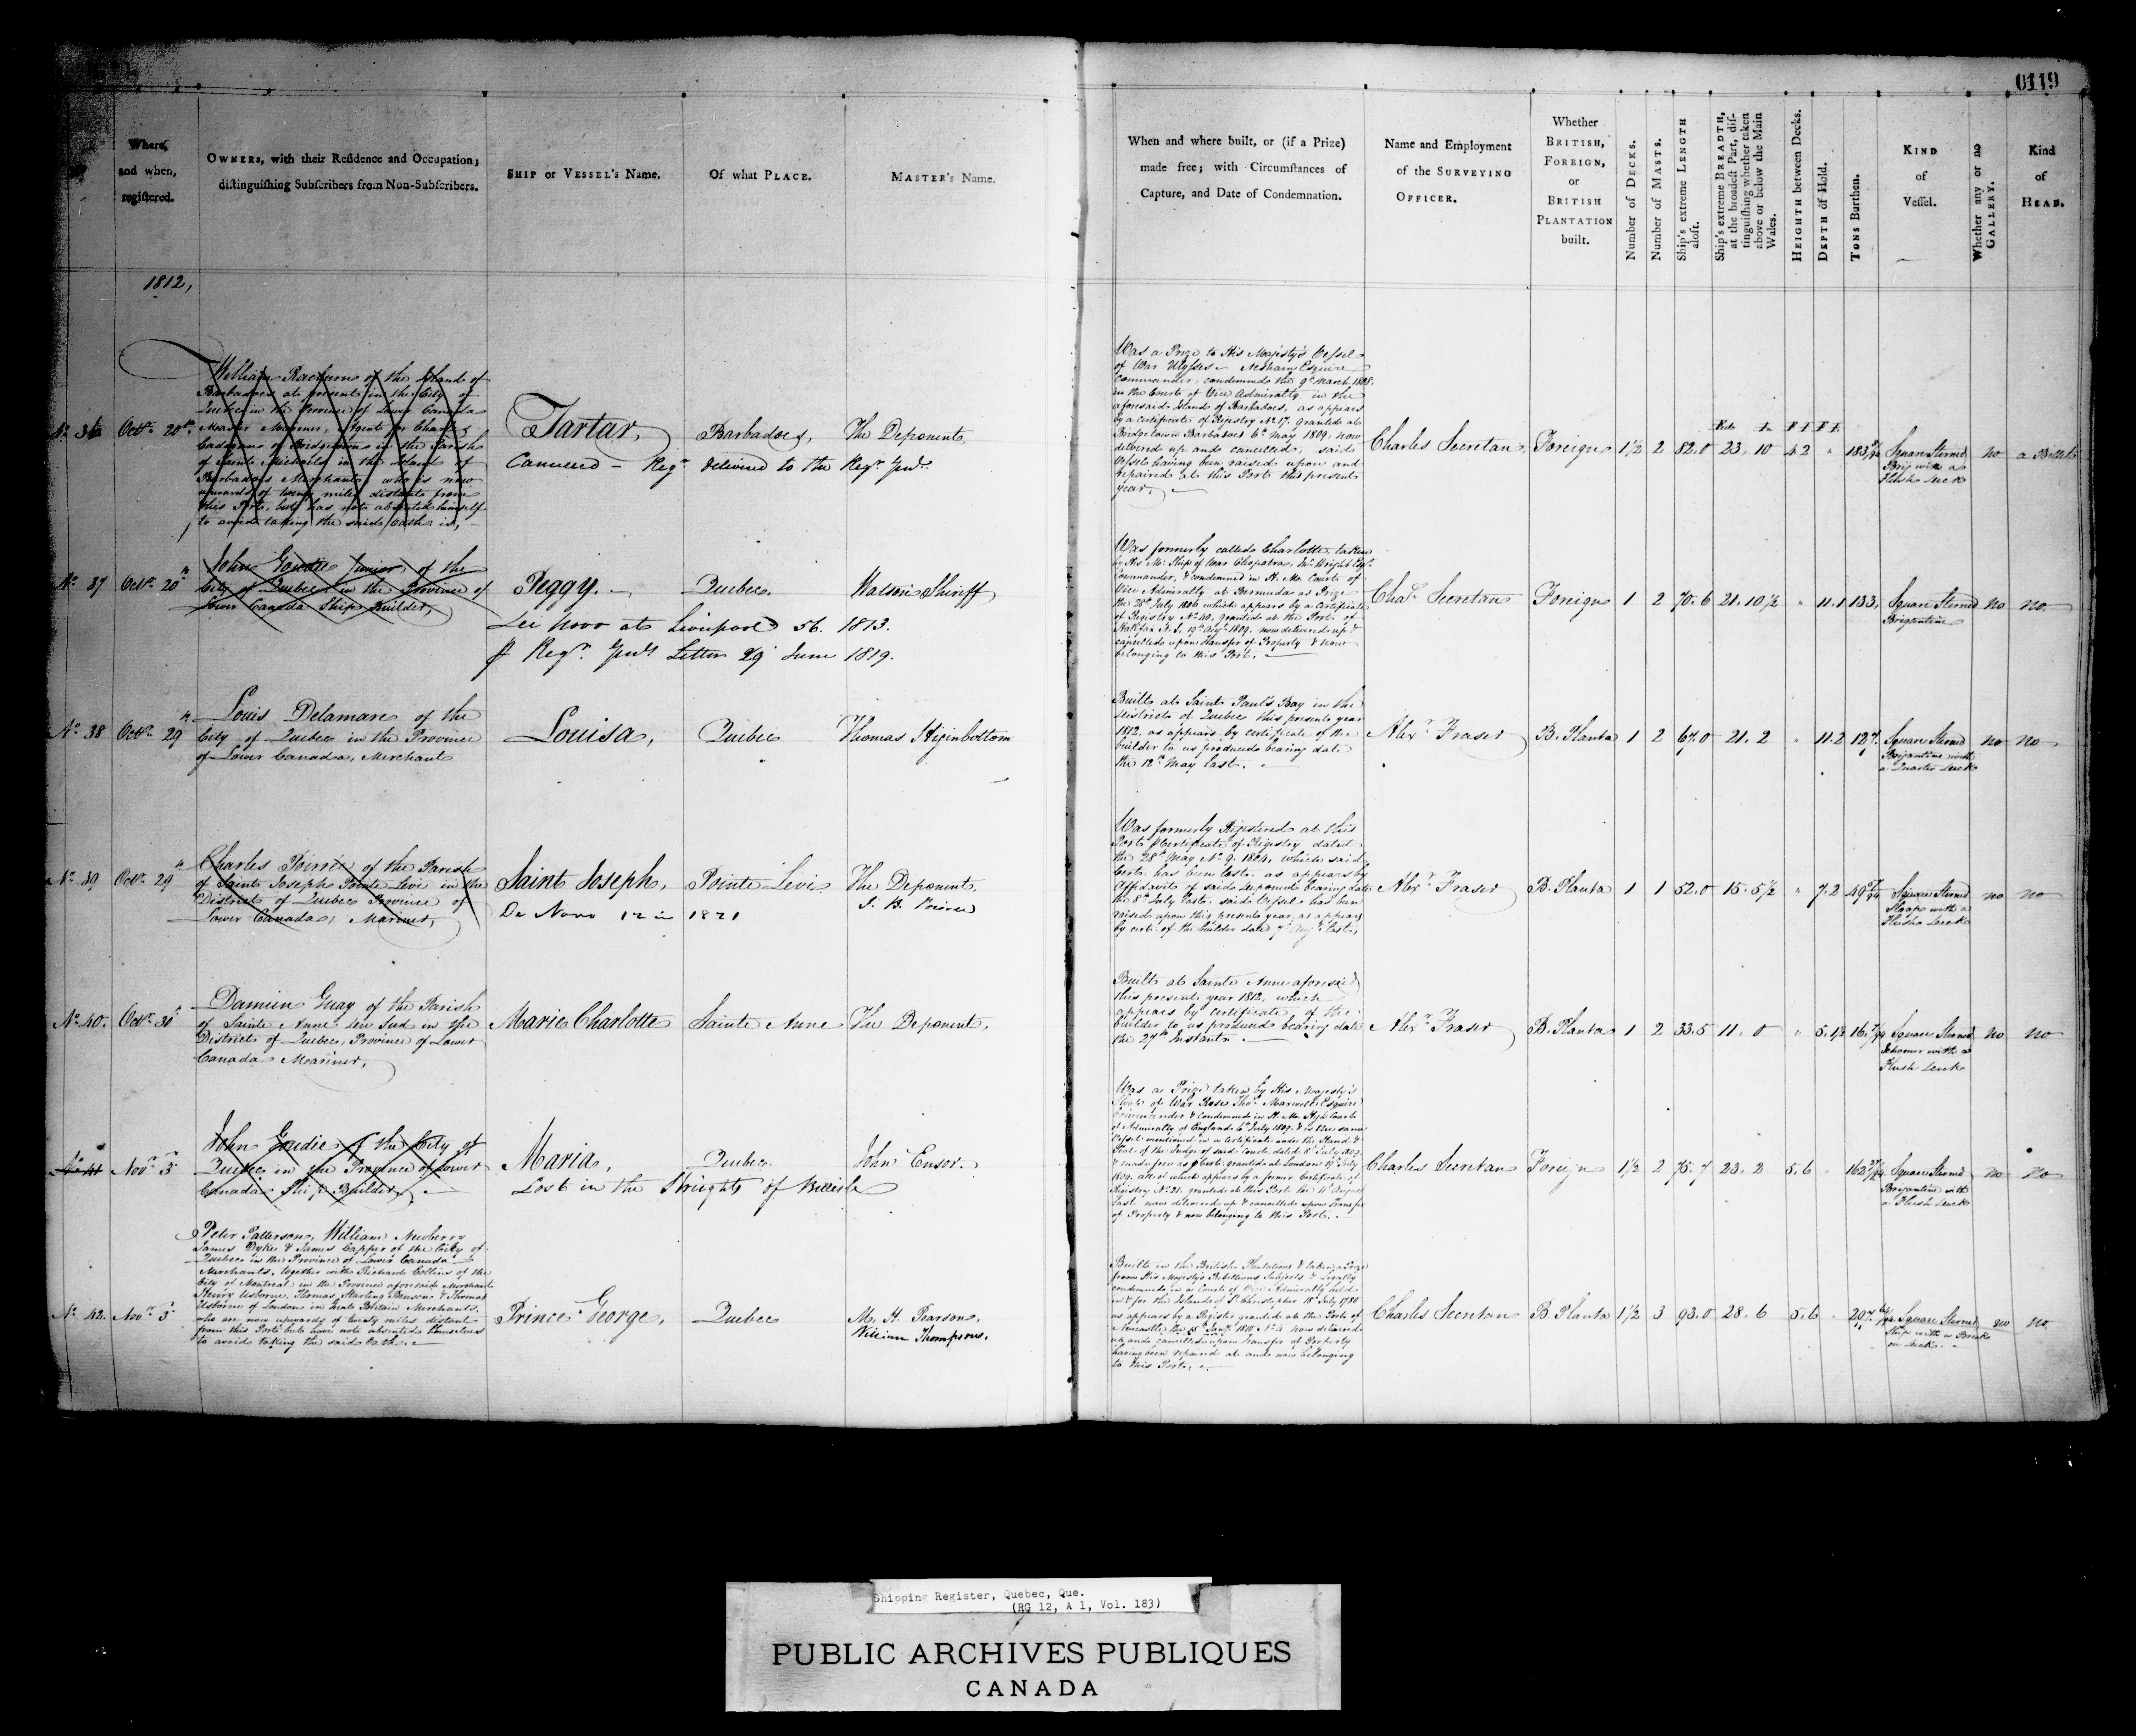 0119
Where, and when, registered.
OWNERS, with their Residence and Occupation; distinguishing Subscribers from Non-Subscribers.
SHIP or VESSEL's Name.
Of what PLACE.
MASTER's Name.
When and where built, or (if a Prize) made free; with Circumstances of Capture, and Date of Condemnation.
Name and Employment of the SURVEYING OFFICER.
Whether BRITISH, FOREIGN, or BRITISH PLANTATION built.
Number of DECKS.
Number of MASTS.
Ship's extreme LENGTH aloft.
Ship's extreme BREADTH, at the broadest Part, distinguishing whether taken above or below the Main Wales.
HEIGHTH between Decks.
DEPTH of Hold.
TONS Burthen.
KIND of Vessel.
Whether any or no GALLERY.
Kind of HEAD.
1812,
No 36
Octr 20th
William of the Island of
Barbadoes at present in the City of
Quebec in the Province of Lower Canada
Master Mariner, Agent for Charles
Cadogan of Bridgetown in the Parish
of Saint Michaels in the Island of
Barbadoes Merchant, who is now
upwards of twenty miles distant from
this Port, but has not absented himself
to avoid taking the said Oath is,
Tartar,
Barbadoes,
The Deponent,
Cancelled - Regr delivered to the Regr Genl.
Was a Prize to His Majesty's Vessel
of War Ulysses Nesham Esquire
Commander, condemned the 9th March 1808,
in the Court of Vice Admiralty in the
aforesaid Island of Barbadoes, as appears
by a Certificate of Registry No 17. granted at
Bridgetown Barbadoes 6th May 1809, now
delivered up and cancelled, said
Vessel having been raised upon and
repaired at this Port this present
year,
Charles Secretan
Foreign
1½ 2 82.0 23. 10 4 2 " 183
Square Sterned
Brig with a
Flush Deck
no
a Billet
No 37
Octr 20th
John Goudie Junior of the
City of Quebec in the Province of
Lower Canada Ship Builder,
Peggy.
Quebec.
Watson Shiriff
See Novo at Liverpool 56. 1813.
p Regr Genls Letter 29 June 1819.
Was formerly called Charlotte, taken
by His M. Ship of War Cleopatra, Wright Esqr
Commander, & condemned in H. M. Court of
Vice Admiralty at Bermuda as Prize
the 28th July 1806 which appears by a Certificate
of Registry No 40, granted at the Port of
Halifax N. S. 19th Augt 1809. now delivered up &
cancelled upon transfer of Property & now
belonging to this Port.
Chas Secretan
Foreign
1 2 70.6 21.10½ " 11.1 133,
Square Sterned
Brigantine
no
no
No 38
Octr 29th
Louis Delamare of the
City of Quebec in the Province
of Lower Canada, Merchant
Louisa,
Quebec
Thomas Higinbottom
Built at Saint Paul's Bay in the
District of Quebec this present year
1812, as appears by certificate of the
builder to us produced bearing date
the 12th May last.
Alexr Fraser
B. Planta
1 2 67.0 21. 2 " 11.2 127.
Square Sterned
Brigantine with
a Quarter Deck
no
no
No 39
Octr 29th
Charles Poiré of the Parish
of Saint Joseph Pointe Levi in the
District of Quebec Province of
Lower Canada, Mariner,
Saint Joseph,
Pointe Levi
The Deponent.
De Novo 12 in 1821
Was formerly Registered at this
Port p Certificate of Registry dated
the 28th May No 9. 1804, which said
Certt. has been lost. as appears by
Affidavit of said Deponent bearing date
the 8th July last. said Vessel has been
raised upon this present year, as appears
by certt. of the builder date 7th Augt last,
Alexr Fraser
B. Planta
1 1 52.0 15. 5½ " 7.2 49
Square Sterned
Sloop with a
Flush Deck
no
no
No 40.
Octr 31st
Damien Guay of the Parish
of Sainte Anne du Sud in the
District of Quebec, Province of Lower
Canada Mariner,
Marie Charlotte
Sainte Anne
The Deponent,
Built at Sainte Anne aforesaid
this present year 1812, which
appears by certificate of the
builder to us produced bearing date
the 27th Instant.
Alexr Fraser
B. Planta
1 2 33.5 11. 0 " 5.1½ 16
Square Sterned
Schooner with a
Flush Deck
no
no
No 41
Novr 3d
John Goudie of the City of
Quebec in the Province of Lower
Canada Ship Builder,
Maria,
Quebec.
John Ensor.
Lost in the Streights of Bellisle
Was a Prize taken by His Majesty's
Sloop of War Rose Thos. Mansell Esquire
Commander & condemned in H. M. High Court
of Admiralty of England 4th July 1809. & is the same
Vessel mentioned in a certificate under the Hand &
Seal of the Judge of said Court, dated 8th July 1809
& made free as p Certt. granted at London 19th July
1809. all of which appears by a former Certificate of
Registry No 21. granted at this Port the 11th August
last now delivered up & cancelled upon Transfer
of Property & now belonging to this Port.
Charles Secretan
Foreign
1½ 2 75.7 23. 2 5.6 162
Square Sterned
Brigantine with
a Flush Deck
no
no
No 42.
Novr 3d
Peter Patterson, William Newberry
James Dyke & James Capper of the City of
Quebec in the Province of Lower Canada
Merchants, together with Richard Collins of the
City of Montreal in the Province aforesaid Merchant
Henry Usborne, Thomas Starling Benson & Thomas
Usborne of London in Great Britain Merchants.
who are now upwards of twenty miles distant
from this Port but have not absented themselves
to avoid taking the said Oath.
Prince George,
Quebec
M. H. Pearson,
William Thompson.
Built in the British Plantations & taken a Prize
from His Majesty's Rebellious Subjects & Legally
condemned in a Court of Vice Admiralty held
in & for the Island of St Christopher 18th July 1780
as appears by a Register granted at the Port of
Newcastle the 15th Jany 1810 No 4. now delivered
up and cancelled upon Transfer of Property
having been repaired at and now belonging
to this Port,
Charles Secretan
B. Planta
1½ 3 93.0 28. 6 5.6 297
Square Sterned
Ship with a Break
on Deck.
no
no
Shipping Register, Quebec, Que.
(RG 12, A 1, Vol. 183)
PUBLIC ARCHIVES PUBLIQUES
CANADA